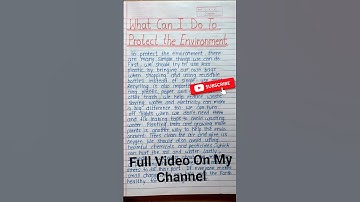 What Can I Do To
Protect the Environment
To protect the environment, there
are many simple things we can do.
First, we should try to use less
plastic by bringing our own bags
when shopping and using reusable
bottles instead of single-use
Recycling is also important
ting plastic, paper and
other trash, we help reduce waste.
Saving water and electricity can make
a big difference too. We can turn
off lights when we don't need them
and fix leaking taps to avoid wasting
water. Planting trees and growing more
plants is another way to help the envi-
ronment. Trees clean the air and give us
oxygen. We should also avoid using
harmful chemicals and pesticides, which
can hurt the soil and water. Lastly,
others to do their part. If everyone makes
small changes help the Earth
healthy
SUBSCRIBE
Full Video On My
Channel